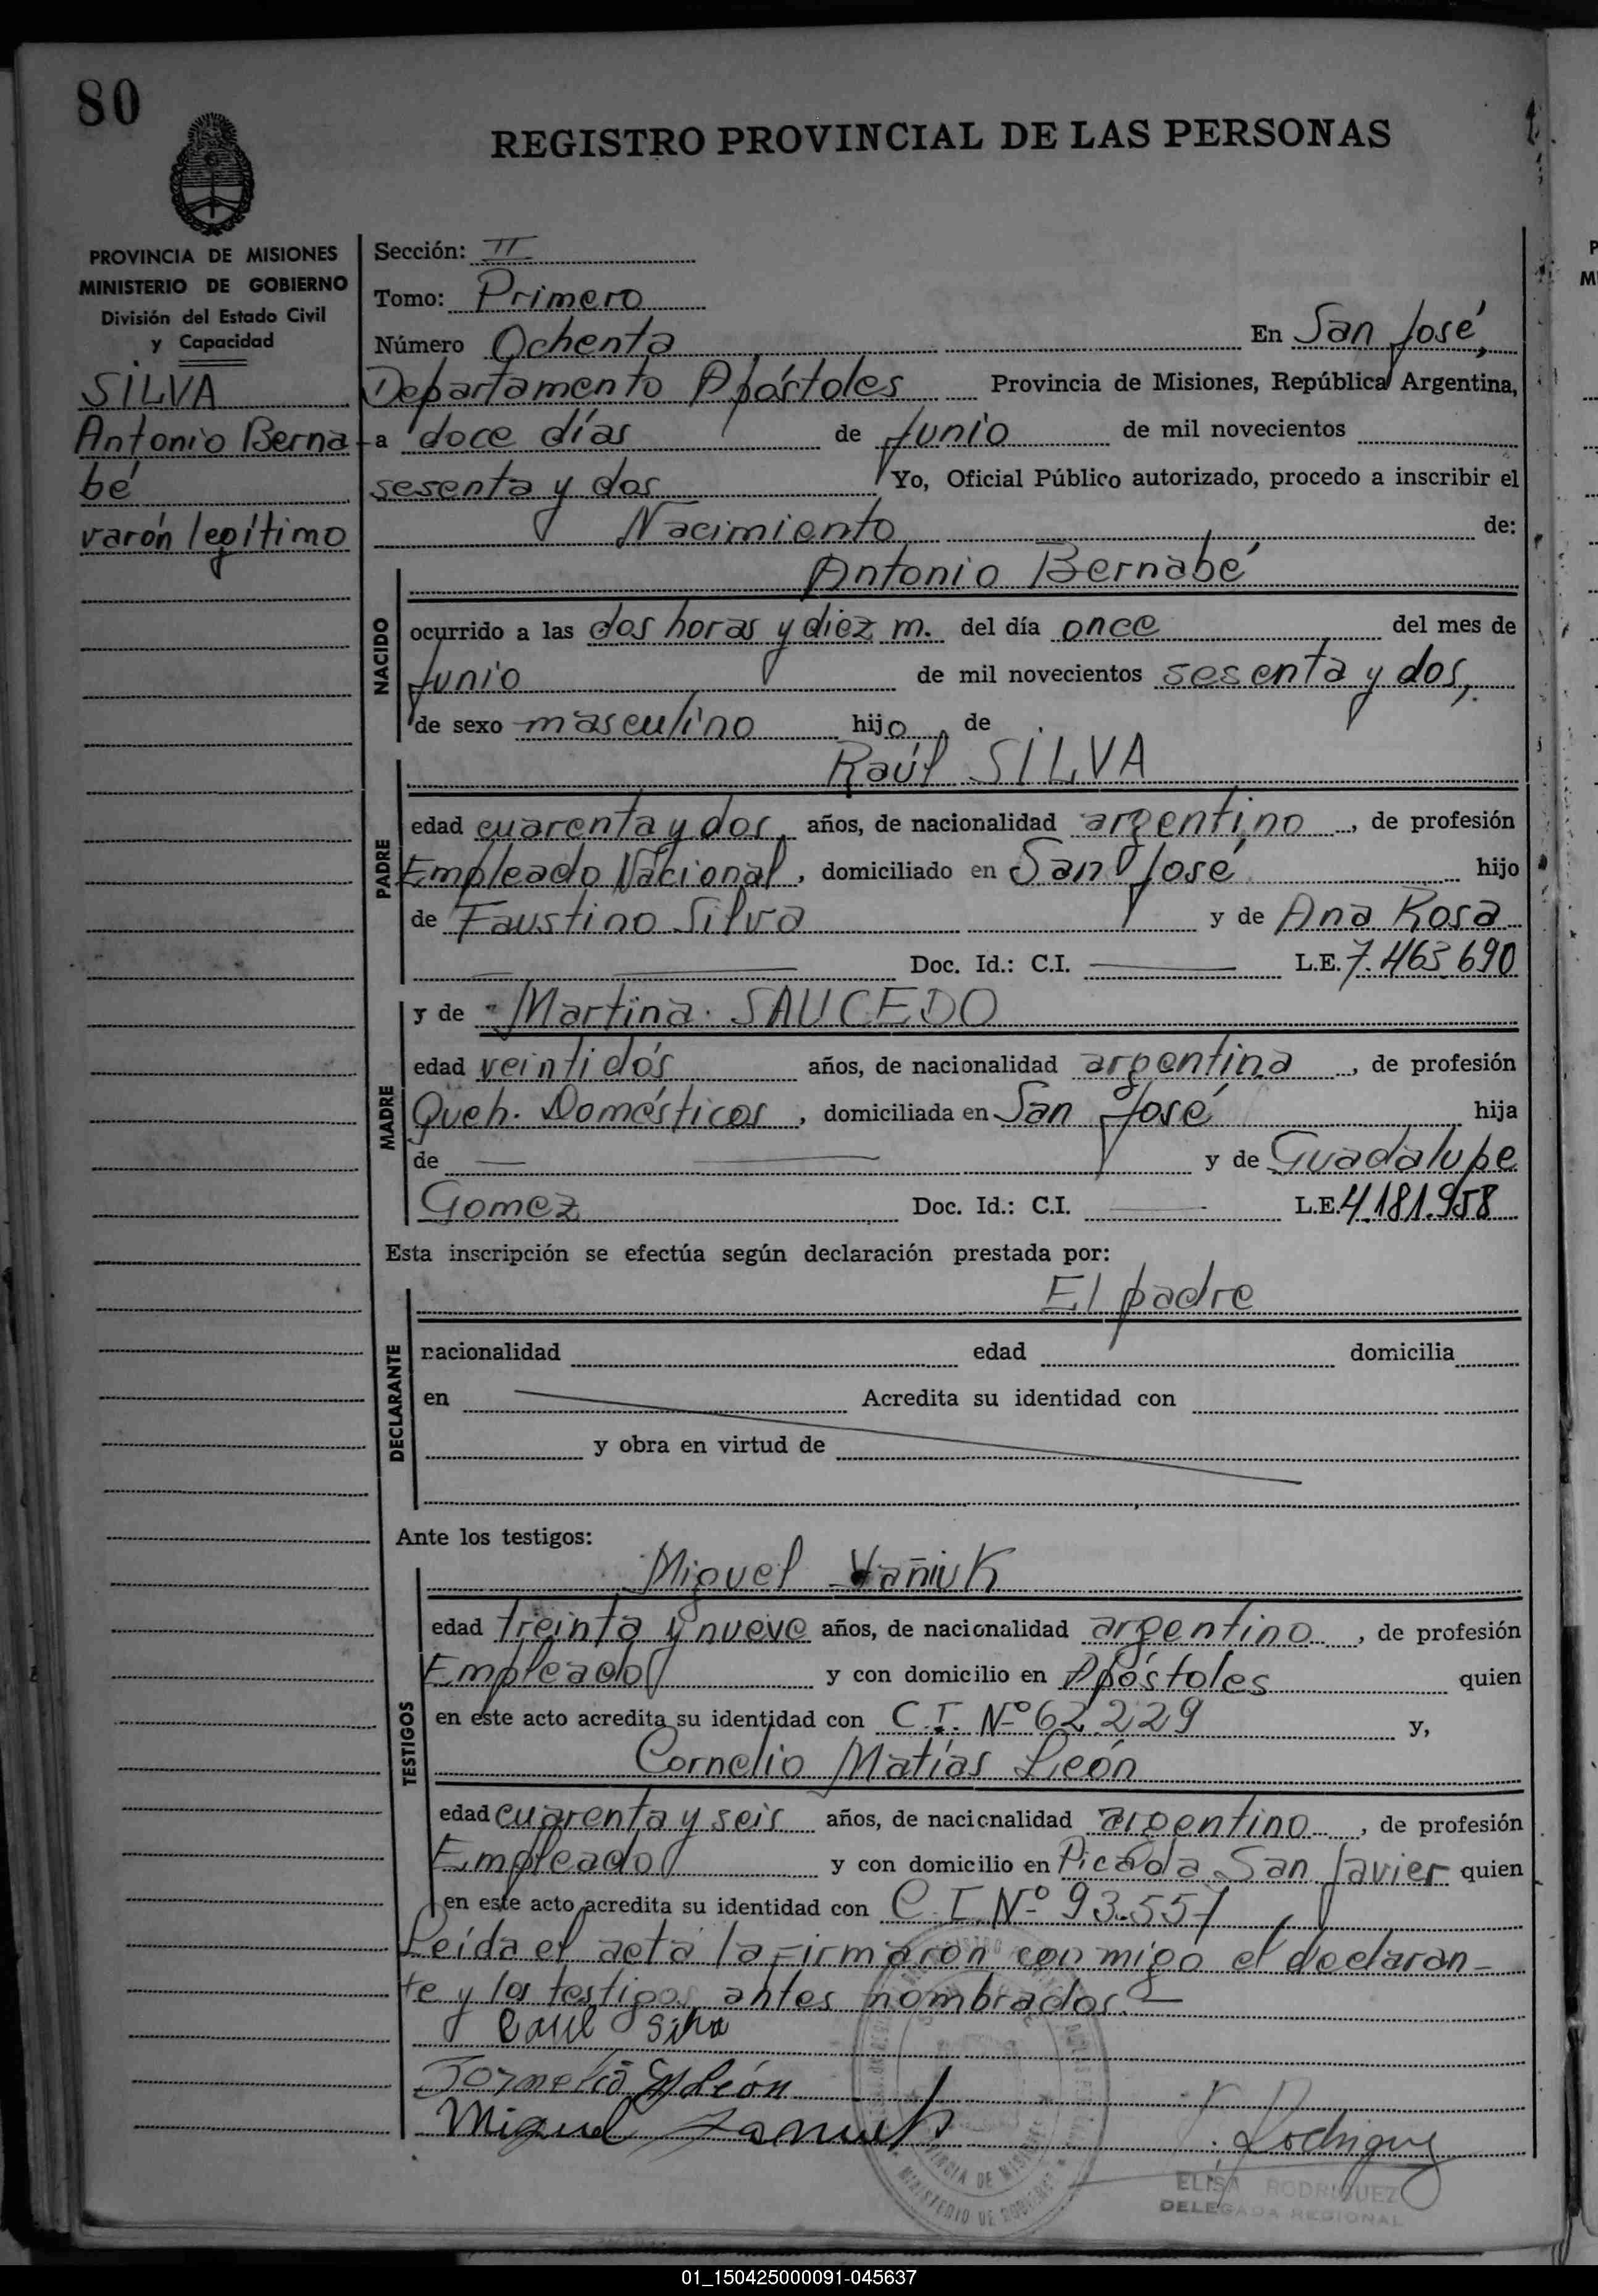 80
REGISTRO PROVINCIAL DE LAS PERSONAS
PROVINCIA DE MISIONES
MINISTERIO DE GOBIERNO
División del Estado Civil
y Capacidad
SILVA
Antonio Berna
bé
varón legítimo
Sección: II
Tomo: Primero
Número Ochenta En San José,
Departamento Apóstoles Provincia de Misiones, República Argentina,
a doce días de Junio de mil novecientos
sesenta y dos Yo, Oficial Público autorizado, procedo a inscribir el
Nacimiento de:
Antonio Bernabé
NACIDO
ocurrido a las dos horas y diez m. del día once del mes de
Junio de mil novecientos sesenta y dos,
de sexo masculino hijo de
Raúl SILVA
PADRE
edad cuarenta y dos, años, de nacionalidad argentino, de profesión
Empleado Nacional, domiciliado en San José hijo
de Faustino Silva y de Ana Rosa
Doc. Id.: C.I. L.E. 7.463.690
y de Martina SAUCEDO
MADRE
edad veintidós años, de nacionalidad argentina, de profesión
Queh. Domésticos, domiciliada en San José hija
de y de Guadalupe
Gomez Doc. Id.: C.I. L.E. 4.181.958
Esta inscripción se efectúa según declaración prestada por:
El padre
DECLARANTE
nacionalidad edad domicilia
en Acredita su identidad con
y obra en virtud de
Ante los testigos:
Miguel
TESTIGOS
edad treinta y nueve años, de nacionalidad argentino, de profesión
Empleado y con domicilio en Apóstoles quien
en este acto acredita su identidad con C.I. Nº 62.229 y,
Cornelio Matías León
edad cuarenta y seis años, de nacionalidad argentino, de profesión
Empleado y con domicilio en Picada San Javier quien
en este acto acredita su identidad con C.I. Nº 93.557
Leída el acta la firmaron conmigo el declaran-
te y los testigos antes nombrados.
Raul Silva
León
Miguel
Rodriguez
ELISA RODRIGUEZ
DELEGADA REGIONAL
MINISTERIO DE GOBIERNO
01_150425000091-045637